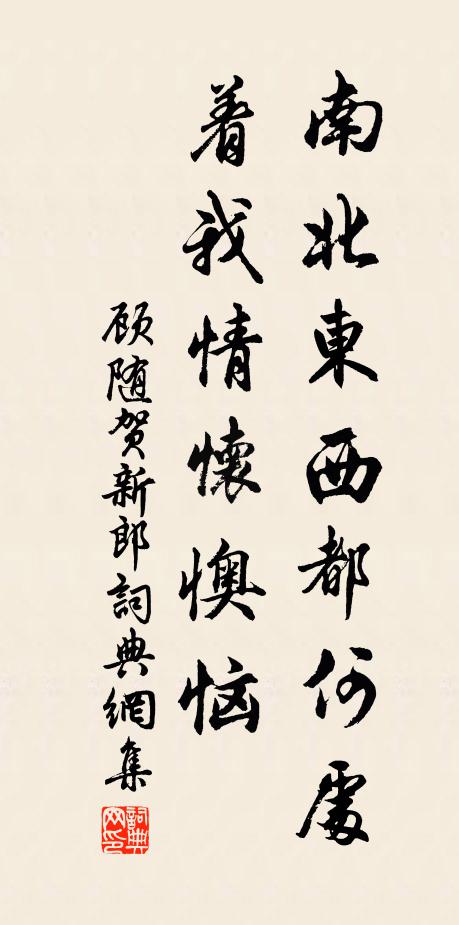 南北東西都何處
着我情懷懊恼
顾随贺新郎詞典網集
詞典网印